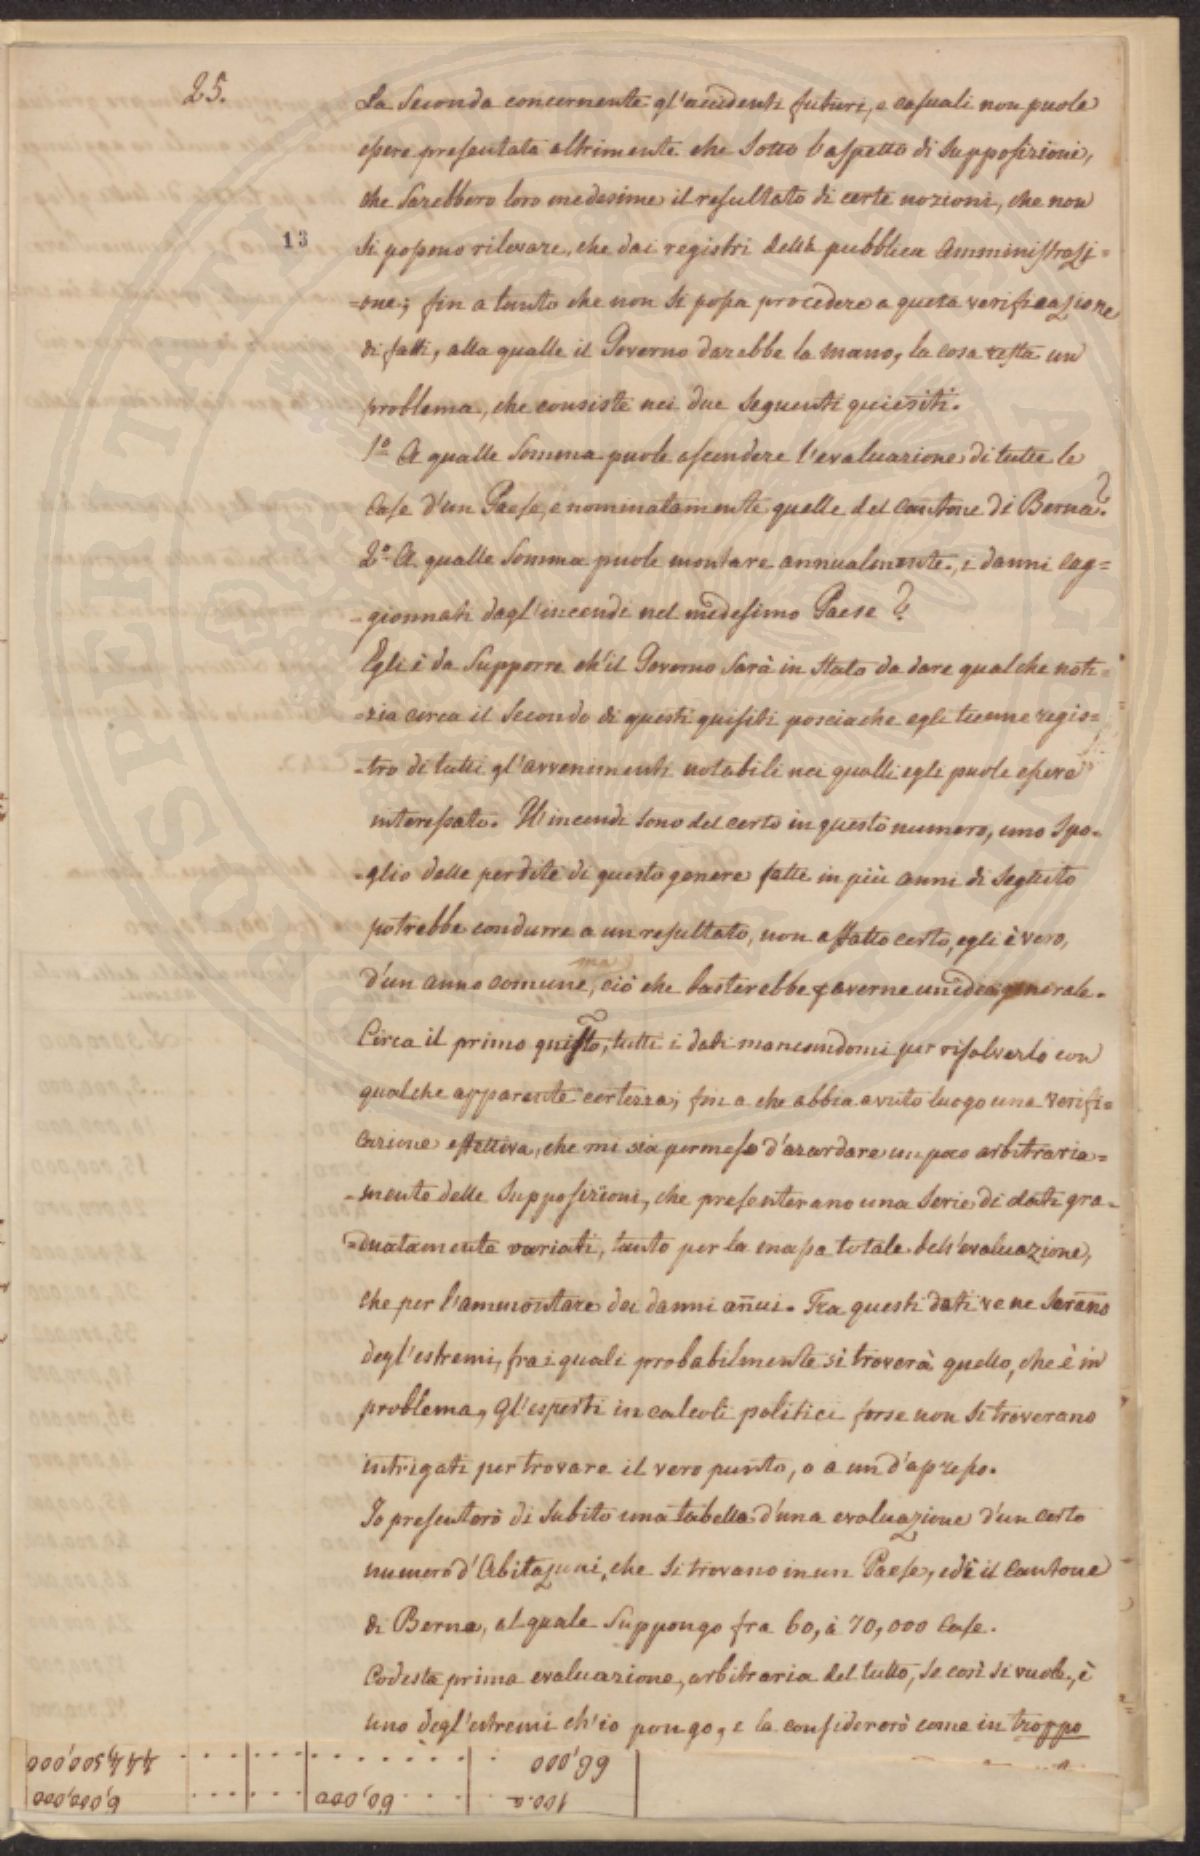 25.
La Seconda concernente gl'accidenti futuri, e casuali non puole
essere presentata altrimente che Sotto l'aspetto di Supposizioni,
che Sarebbero loro medesime il resultato di certe nozioni, che non
13
Si possono rilevare, che dai registri della pubblica Amministrazi=
=one; fin a tanto che non Si possa procedere a questa verificazione
di fatti, alla qualle il Governo darebbe la mano, la cosa resta un
problema, che consiste nei due Seguenti quiesiti.
1º A qualle Somma puole ascendere l'evaluazione di tutte le
Case d'un Paese, e nominatamente quelle del cantone di Berna?
2º A qualle Somma puole montare annualmente, i danni cag=
=gionnati dagl'incendi nel medesimo Paese?
Egli è da Supporre ch'il Governo Sarà in Stato da dare qualche noti=
=zia circa il Secondo di questi quisiti posciache egli tienne regis=
=tro di tutti gl'avvenimenti notabili nei qualli egli puole essere
interessato. Gl'incendi Sono del certo in questo numero, uno Spo=
=glio delle perdite di questo genere fatte in più anni di Seguito
potrebbe condurre a un resultato, non affatto certo, egli è vero,
ma
d'un anno comune, ciò che basterebbe p averne un idea generale.
Circa il primo quisito, tutti i dati mancandomi per risolverlo con
qualche apparente certezza; fin a che abbia avuto luogo una verifi=
cazione effettiva, che mi sia permesso d'azardare un poco arbitraria=
=mente delle Supposizioni, che presenterano una Serie di dati gra=
=duatamente variati, tanto per la massa totale dell'evaluazione,
che per l'ammontare dei danni annui. Fra questi dati ve ne Sarano
degl'estremi, fra i quali probabilmente si troverà quello, che è in
problema, gl'esperti in calcoli politici forse non Si troverano
intrigati per trovare il vero punto, o a un d'apresso.
Io presenterò di Subito una tabella d'una evaluazione d'un certo
numero d'Abitazioni, che Si trovano in un Paese, ed è il Cantone
di Berna, al quale Suppongo fra 60, à 70,000 Case.
Codesta prima evaluazione, arbitraria del tutto, se così si vuole, è
uno degl'estremi ch'io pongo, e la considererò come in troppo
66,000 . . . . . . . . . . . 444,500,000
100.a . . . 60,000 . . . . . . 6,000,000